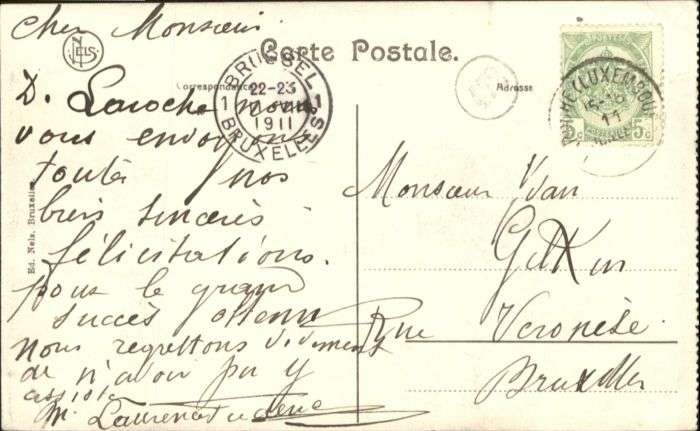 Cher Monsieur
NELS
Carte Postale.
Correspondance
Adresse
BRUSSEL
1 22-23 1
1911
BRUXELLES
(LUXEMBOURG)
11
5c 5c
D. Laroche nous
vous envoyons
toutes nos
bien sincères
félicitations.
pour le grand
succès obtenu
Nous regrettons vivement
de n'avoir pu y
assister
Ed. Nels, Bruxelles.
Monsieur
Rue Veronèse
Bruxelles